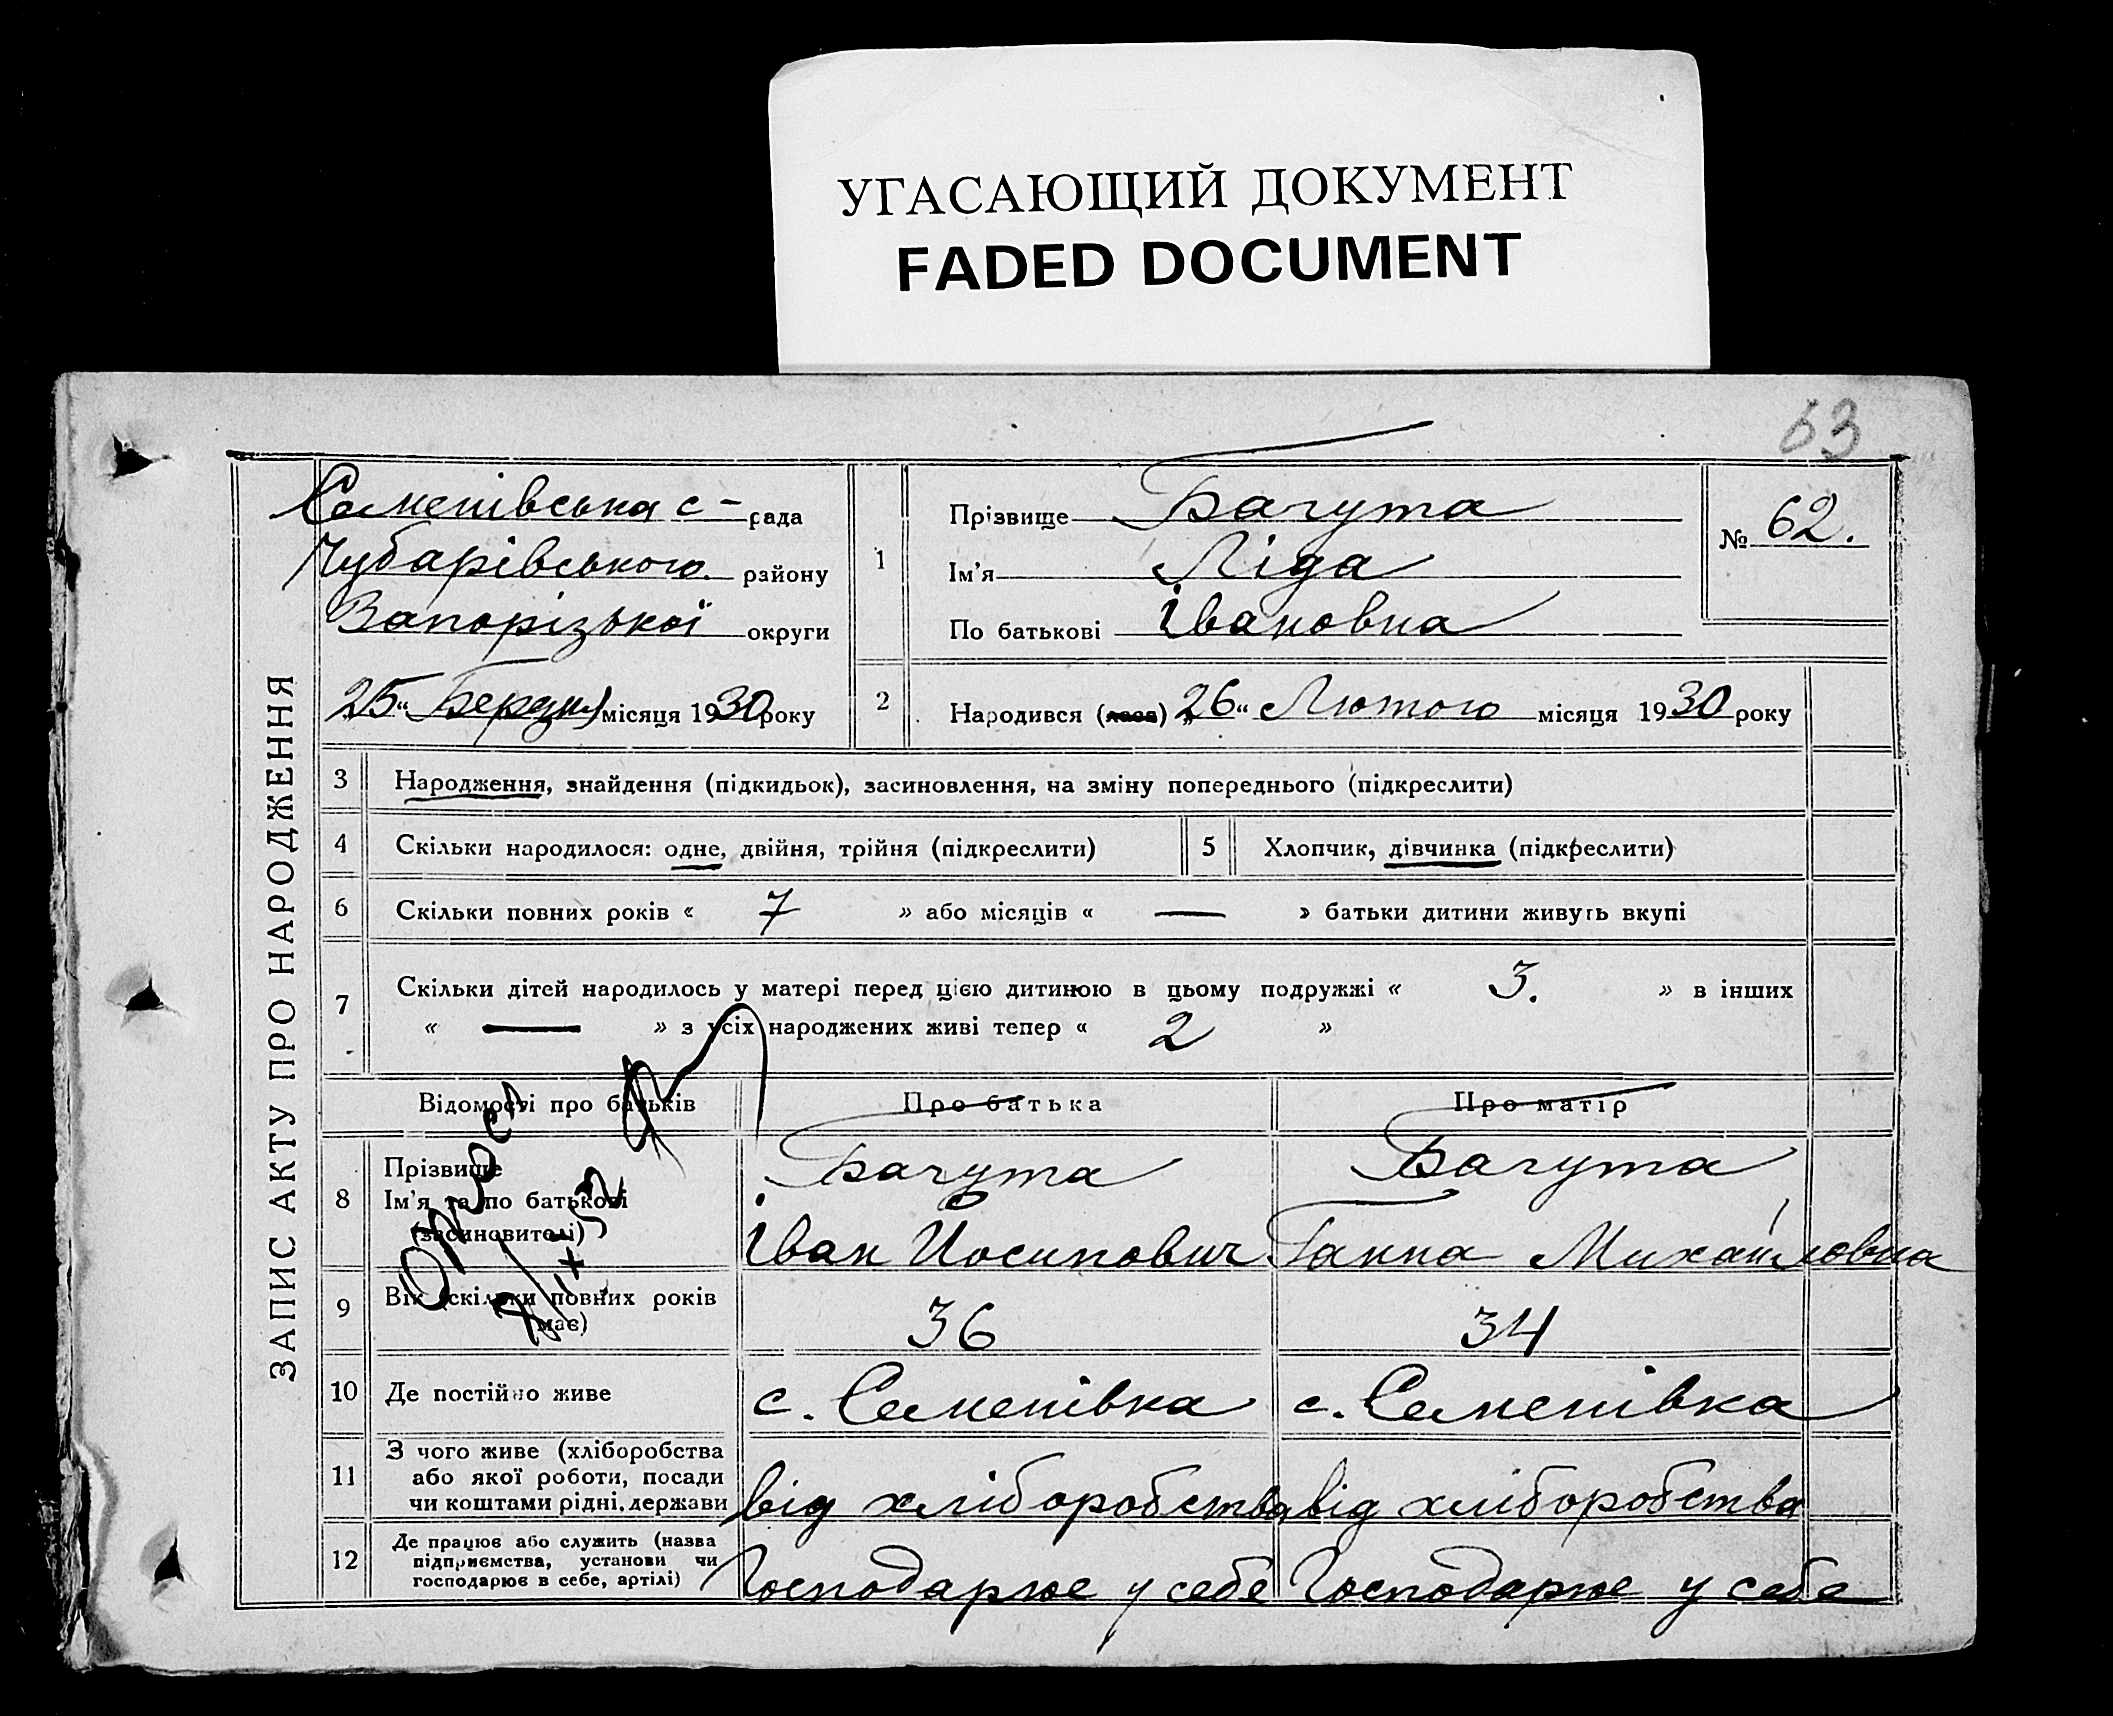 УГАСАЮЩИЙ ДОКУМЕНТ
FADED DOCUMENT
63
ЗАПИС АКТУ ПРО НАРОДЖЕННЯ
Семенівська с - рада
Чубарівського району
Запорізької округи
25 " Березня місяця 1930 року
1
Прізвище Бачута
Ім'я Ліда
По батькові Івановна
№ 62.
2
Народився (лася) „26“ Лютого місяця 1930 року
3 Народження, знайдення (підкидьок), засиновлення, на зміну попереднього (підкреслити)
4 Скільки народилося: одне, двійня, трійня (підкреслити)
5 Хлопчик, дівчинка (підкреслити)
6 Скільки повних років « 7 » або місяців « — » батьки дитини живуть вкупі
7 Скільки дітей народилось у матері перед цією дитиною в цьому подружжі « 3. » в інших
« — » з усіх народжених живі тепер « 2 »
Відомості про батьків Про батька Про матір
8 Прізвище Бачута Бачута
Ім'я та по батькові Іван Йосипович Ганна Михайловна
(засиновителі)
9 Вік (скільки повних років 36 34
має)
10 Де постійно живе с. Семенівка с. Семенівка
11 З чого живе (хліборобства
або якої роботи, посади
чи коштами рідні, держави від хліборобства від хліборобства
12 Де працює або служить (назва
підприємства, установи чи
господарює в себе, артілі) Господарює у себе Господарює у себе